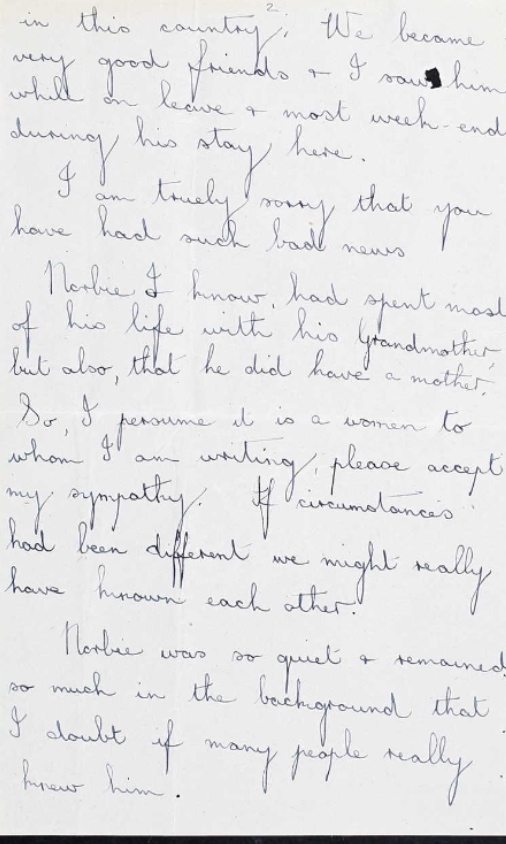 2
in this country; We became
very good friends & I saw him
while on leave & most week-end
during his stay here.
I am truely sorry that you
have had such bad news
Norbie I know, had spent most
of his life with his Grandmother,
but also, that he did have a mother.
So, I persume it is a women to
whom I am writing, please accept
my sympathy. If circumstances
had been different we might really
have known each other.
Norbie was so quiet & remained
so much in the background that
I doubt if many people really
knew him.